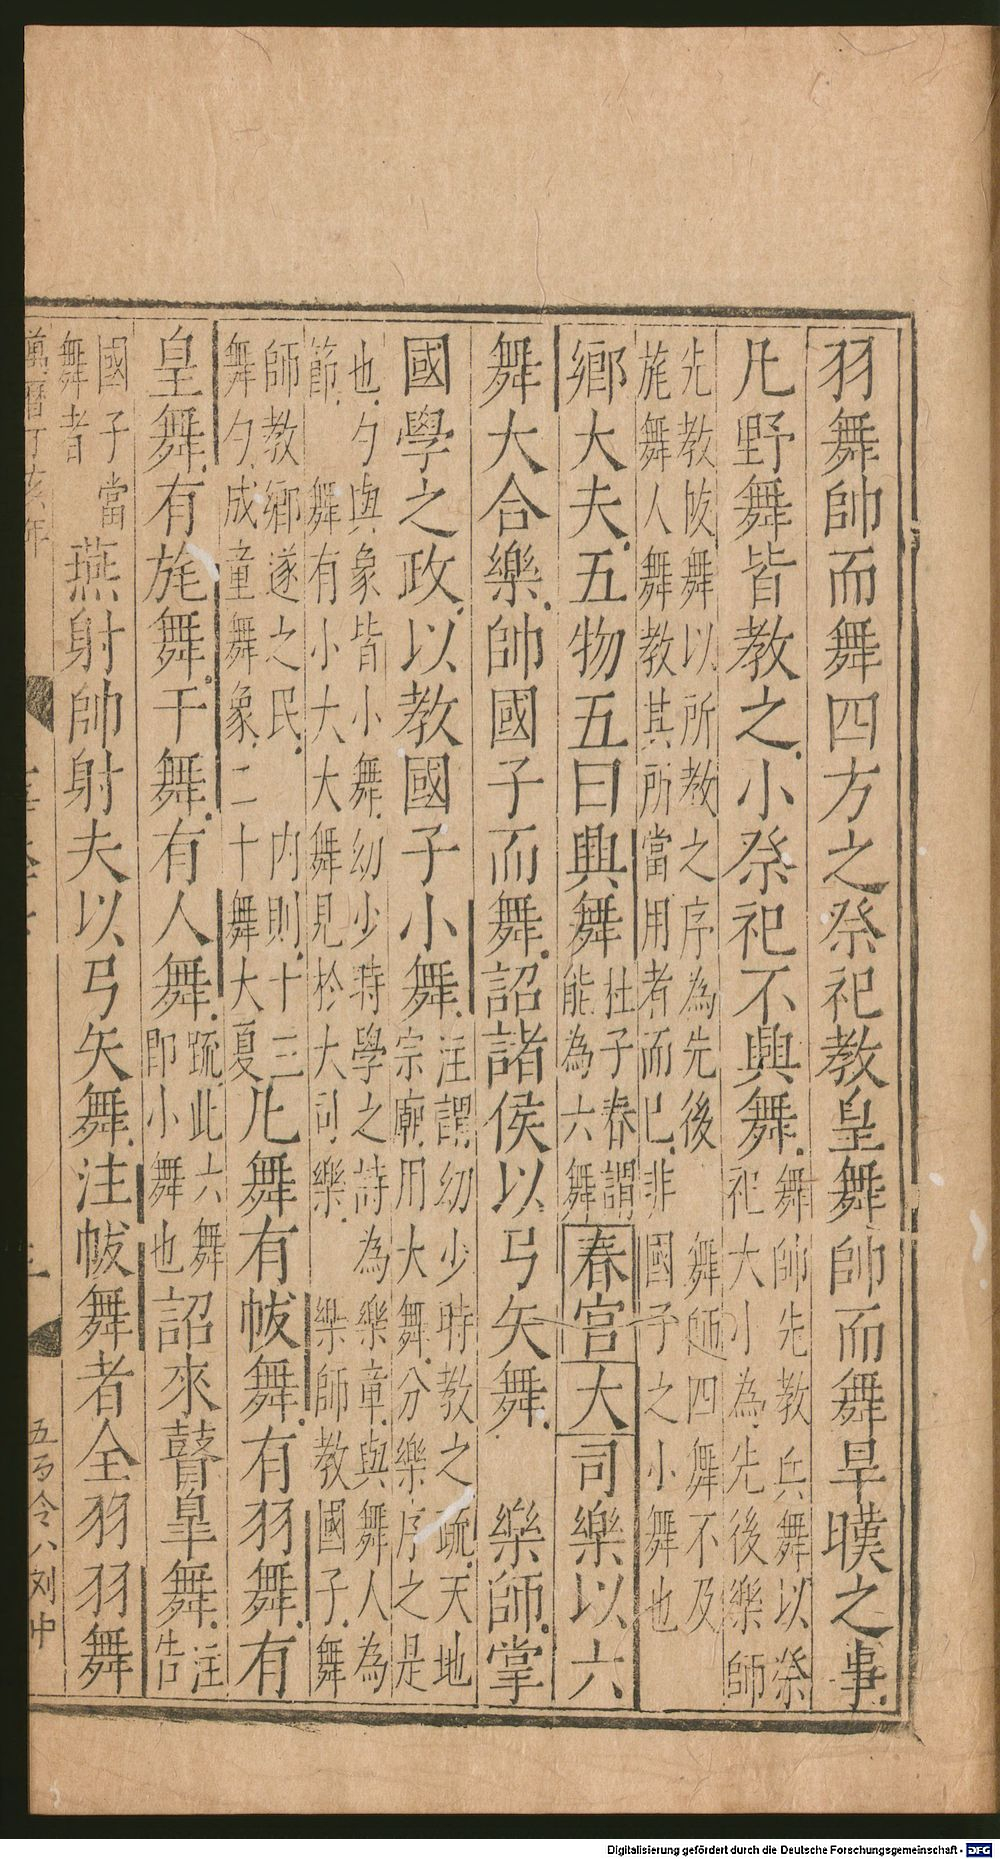 羽舞帥而舞四方之祭祀教皇舞帥而舞旱暵之事
凡野舞皆教之小祭祀不興舞舞師先教兵舞以祭祀大小為先後樂師
先教帗舞以所教之序為先後旄舞人舞教其所當用者而已非舞師四舞不及國子之小舞也
鄉大夫五物五曰興舞杜子春謂能為六舞春官大司樂以六
舞大合樂帥國子而舞詔諸侯以弓矢舞 樂師掌
國學之政以教國子小舞注謂幼少時教之疏天地宗廟用大舞分樂序之是
也勺與象皆小舞幼少時學之詩為樂章與舞人為節舞有小大大舞見於大司樂樂師教國子舞
師教鄉遂之民內則十三舞勺成童舞象二十舞大夏凡舞有帗舞有羽舞有
皇舞有旄舞干舞有人舞疏此六舞即小舞也詔來瞽皐舞注告
國子當舞者燕射帥射夫以弓矢舞注帗舞者全羽羽舞
萬曆丁亥年
三
五百令八刘中
Digitalisierung gefördert durch die Deutsche Forschungsgemeinschaft - DFG